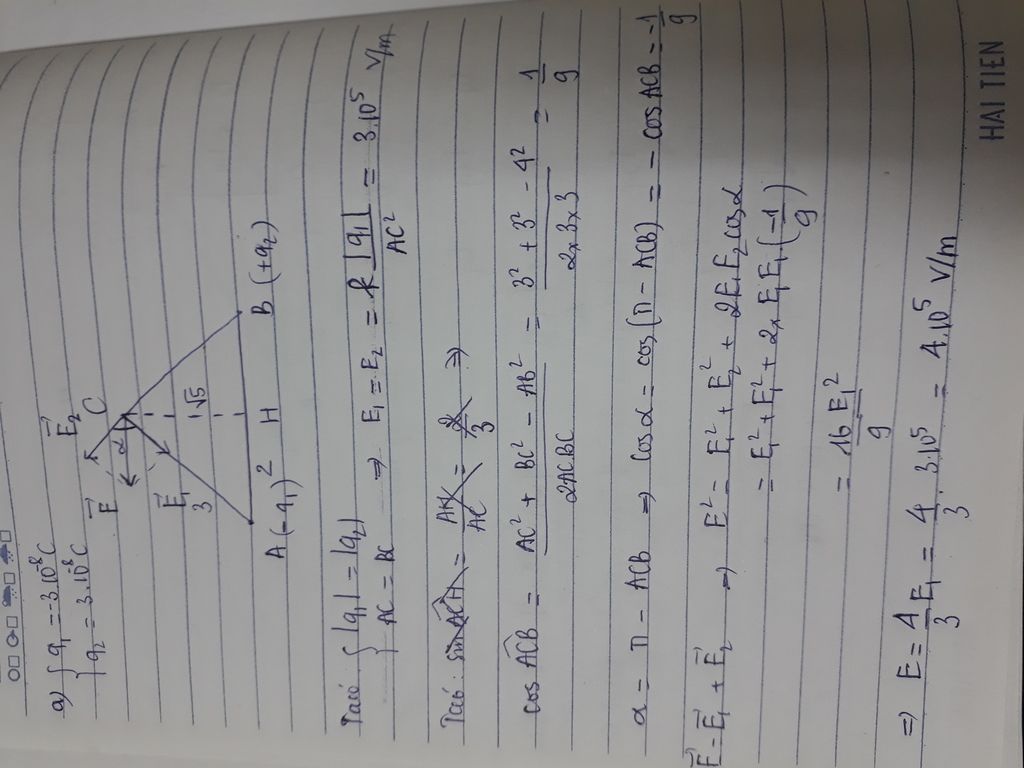 a) { q₁ = -3.10⁻⁸ C
{ q₂ = 3.10⁻⁸ C
E⃗ E⃗₂
α C
E⃗₁
3 1√5
A (-q₁) 2 H B (+q₂)
Ta có { |q₁| = |q₂|
{ AC = BC ⇒ E₁ = E₂ = k |q₁| / AC² = 3.10⁵ V/m
Ta có: sin ACH = AK/AC = 2/3 ⇒
cos ACB = (AC² + BC² - AB²) / 2ACBC = (3² + 3² - 4²) / 2x3x3 = 1/9
α = π - ACB ⇒ cos α = cos(π - ACB) = - cos ACB = -1/9
E⃗ = E⃗₁ + E⃗₂ ⇒ E² = E₁² + E₂² + 2E₁E₂ cos α
= E₁² + E₁² + 2x E₁E₁ (-1/9)
= 16 E₁² / 9
⇒ E = 4/3 E₁ = 4/3 . 3.10⁵ = 4.10⁵ V/m
HAI TIEN